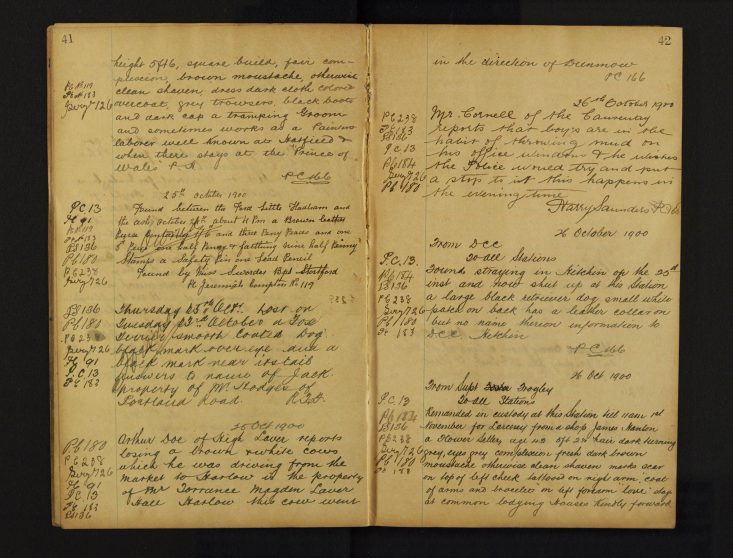 41
height 5ft6, square build, fair com-
plexion, brown moustache, otherwise
clean shaven: dress dark cloth colored
overcoat, grey trowsers, black boots
and dark cap a tramping Groom
and sometimes works as a Painters
laborer well known at Hatfield &
when there stays at the Prince of
Wales P.H.
PC 166
PC 119
Pc 183
Sergt 726
25th October 1900
Found between the Ford Little Hadham and
the October 24th about 4 Pm a Brown leather
Purse and three Penny Pieces and one
one half Penny & farthing nine half Penny
Stamps a Safety Pin one Lead Pencil
Found by Miss Swordes Bps Stortford
Pc Jeremiah Compton 119
PC 13
Pc 91
Pc 119
Pc 183
PS 136
Pc 180
Pc 238
Sergt 726
Thursday 25th Oct. Lost on
Tuesday 23rd October a Fox
Terrier smooth Coated Dog
black mark over eye and a
black mark near its tail
answers to name of Jack
property of Mr Hodges of
Portland Road.
PS 136
Pc 180
Pc 23
Sergt 726
Pc 91
P.C 13
Pc 183
25 Oct 1900
Arthur Doe of High Laver reports
losing a brown & white cow
which he was driving from the
market to Harlow is the property
of Mr Torrance Magden Laver
Hall Harlow this cow went
Pc 180
Pc 238
Sergt 726
Pc 91
Pc 13
Pc 183
PS 136
42
in the direction of Dunmow
PC 166
26th October 1900
Mr. Cornell of the Causeway
reports that boys are in the
habit of throwing mud on
his office window & he wishes
the Police would try and put
a stop to it this happens in
the evening time
Harry Saunders
Pc 238
Pc 183
PS 136
P.C 13
Pc 184
Sergt 726
Pc 180
26 October 1900
From DCC
To all Stations
Found straying in Hitchin on the 25th
inst and now shut up at this Station
a large black retriever dog small white
patch on back has a leather collar on
but no name thereon information to
D.C.C. Hitchin
PC 166
P.C. 13.
Pc 184
PS 136
Pc 238
Sergt 726
Pc 180
Pc 183
26 Oct 1900
From Supt Frogley
To all Stations
Remanded in custody at this Station till 11am 1st
November for Larceny from a shop James Hanlon
a Flower Seller, age 42 5ft 2in hair dark turning
grey, eyes grey complexion fresh dark brown
moustache otherwise clean shaven marks scar
on top of left cheek tattooed on right arm, coat
of arms and bracelet on left forearm "love" stays
at common lodging Houses kindly forward
P.C 13
Pc 184
PS 136
Pc 238
Sergt 726
Pc 180
Pc 183